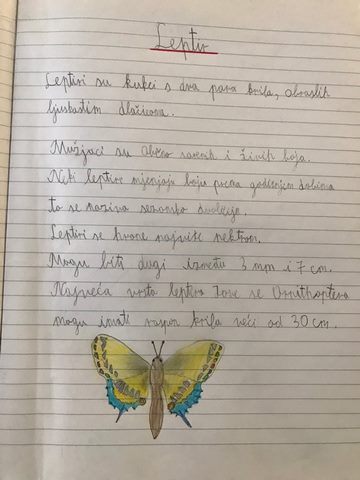 Leptir
Leptiri su kukci s dva para krila, obraslih
ljuskastim dlačicama.
Mužjaci su obično šarenih i živih boja.
Neki leptiri mjenjaju boju prema godišnjem dobima
to se naziva sezonsko
Leptiri se hrane najviše nektrom.
Mogu biti dugi između 3 mm i 7 cm.
Najveća vrsta leptira zove se Ornithoptera
mogu imati raspon krila veći od 30 cm.